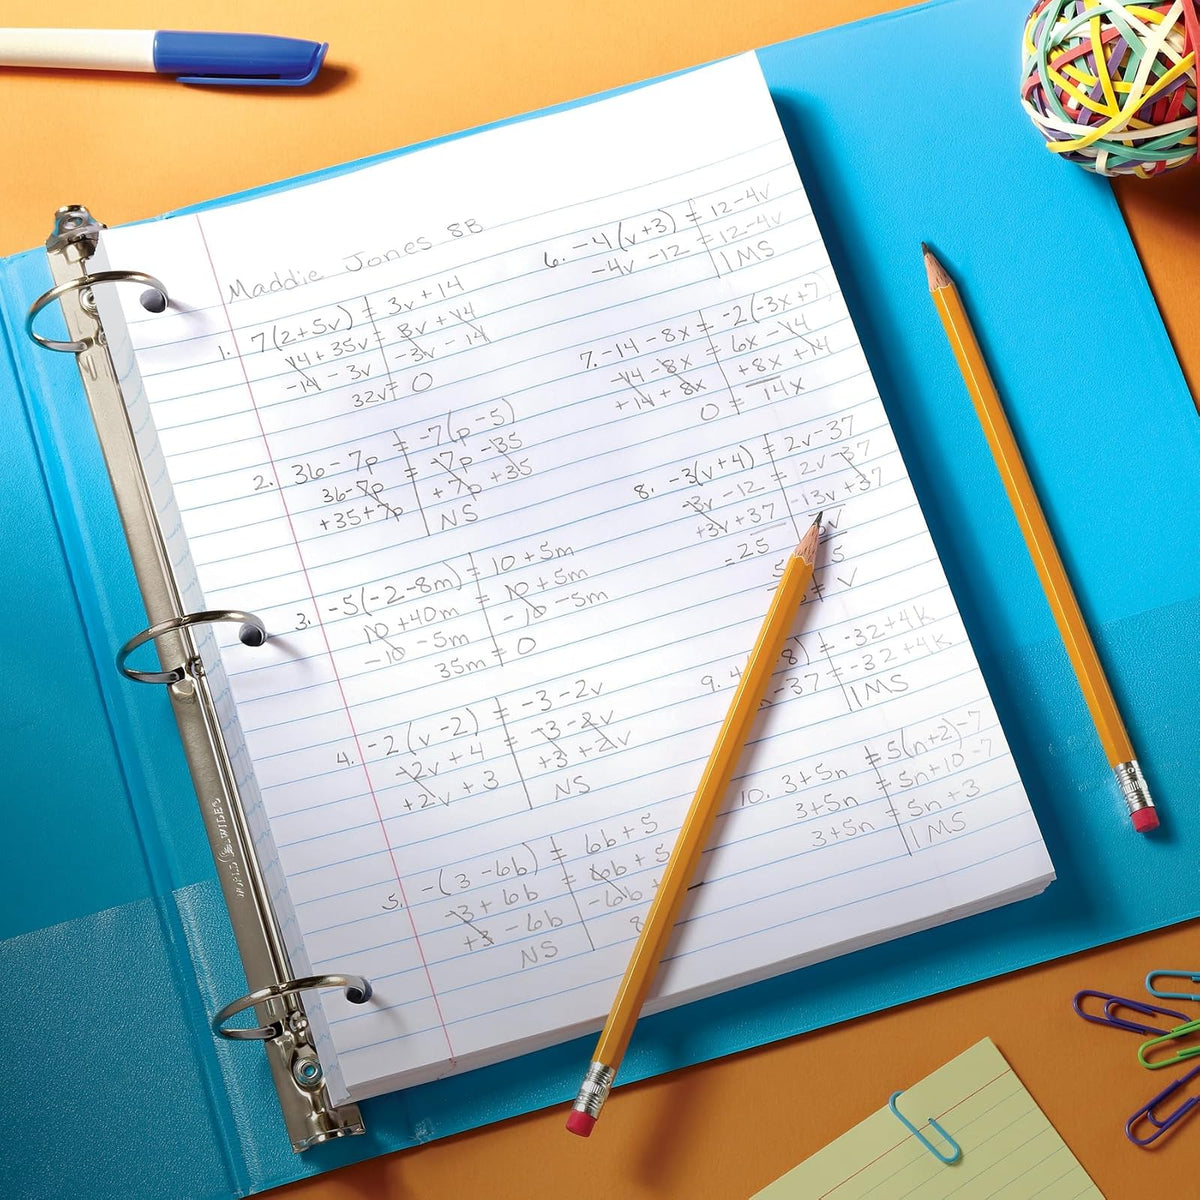 Maddie Jones 8B
1. 7(2+5v) = 3v+14
14+35v = 3v+14
-14-3v -3v-14
32v = 0
2. 36-7p = -7(p-5)
36-7p = -7p-35
+35+7p +7p+35
NS
3. -5(-2-8m) = 10+5m
10+40m = 10+5m
-10-5m -10-5m
35m = 0
4. -2(v-2) = -3-2v
-2v+4 = -3-2v
+2v+3 +3+2v
NS
5. -(3-6b) = 6b+5
-3+6b = 6b+5
+3-6b -6b+
NS 8
6. -4(v+3) = 12-4v
-4v-12 = 12-4v
IMS
7. -14-8x = -2(-3x+7)
-14-8x = 6x-14
+14+8x +8x+14
0 = 14x
8. -3(v+4) = 2v-37
-3v-12 = 2v-37
+3v+37 -13v+37
=25 5v
5 5
= v
9. 4 8) = -32+4k
-37 = -32+4k
IMS
10. 3+5n = 5(n+2)-7
3+5n = 5n+10-7
3+5n = 5n+3
IMS